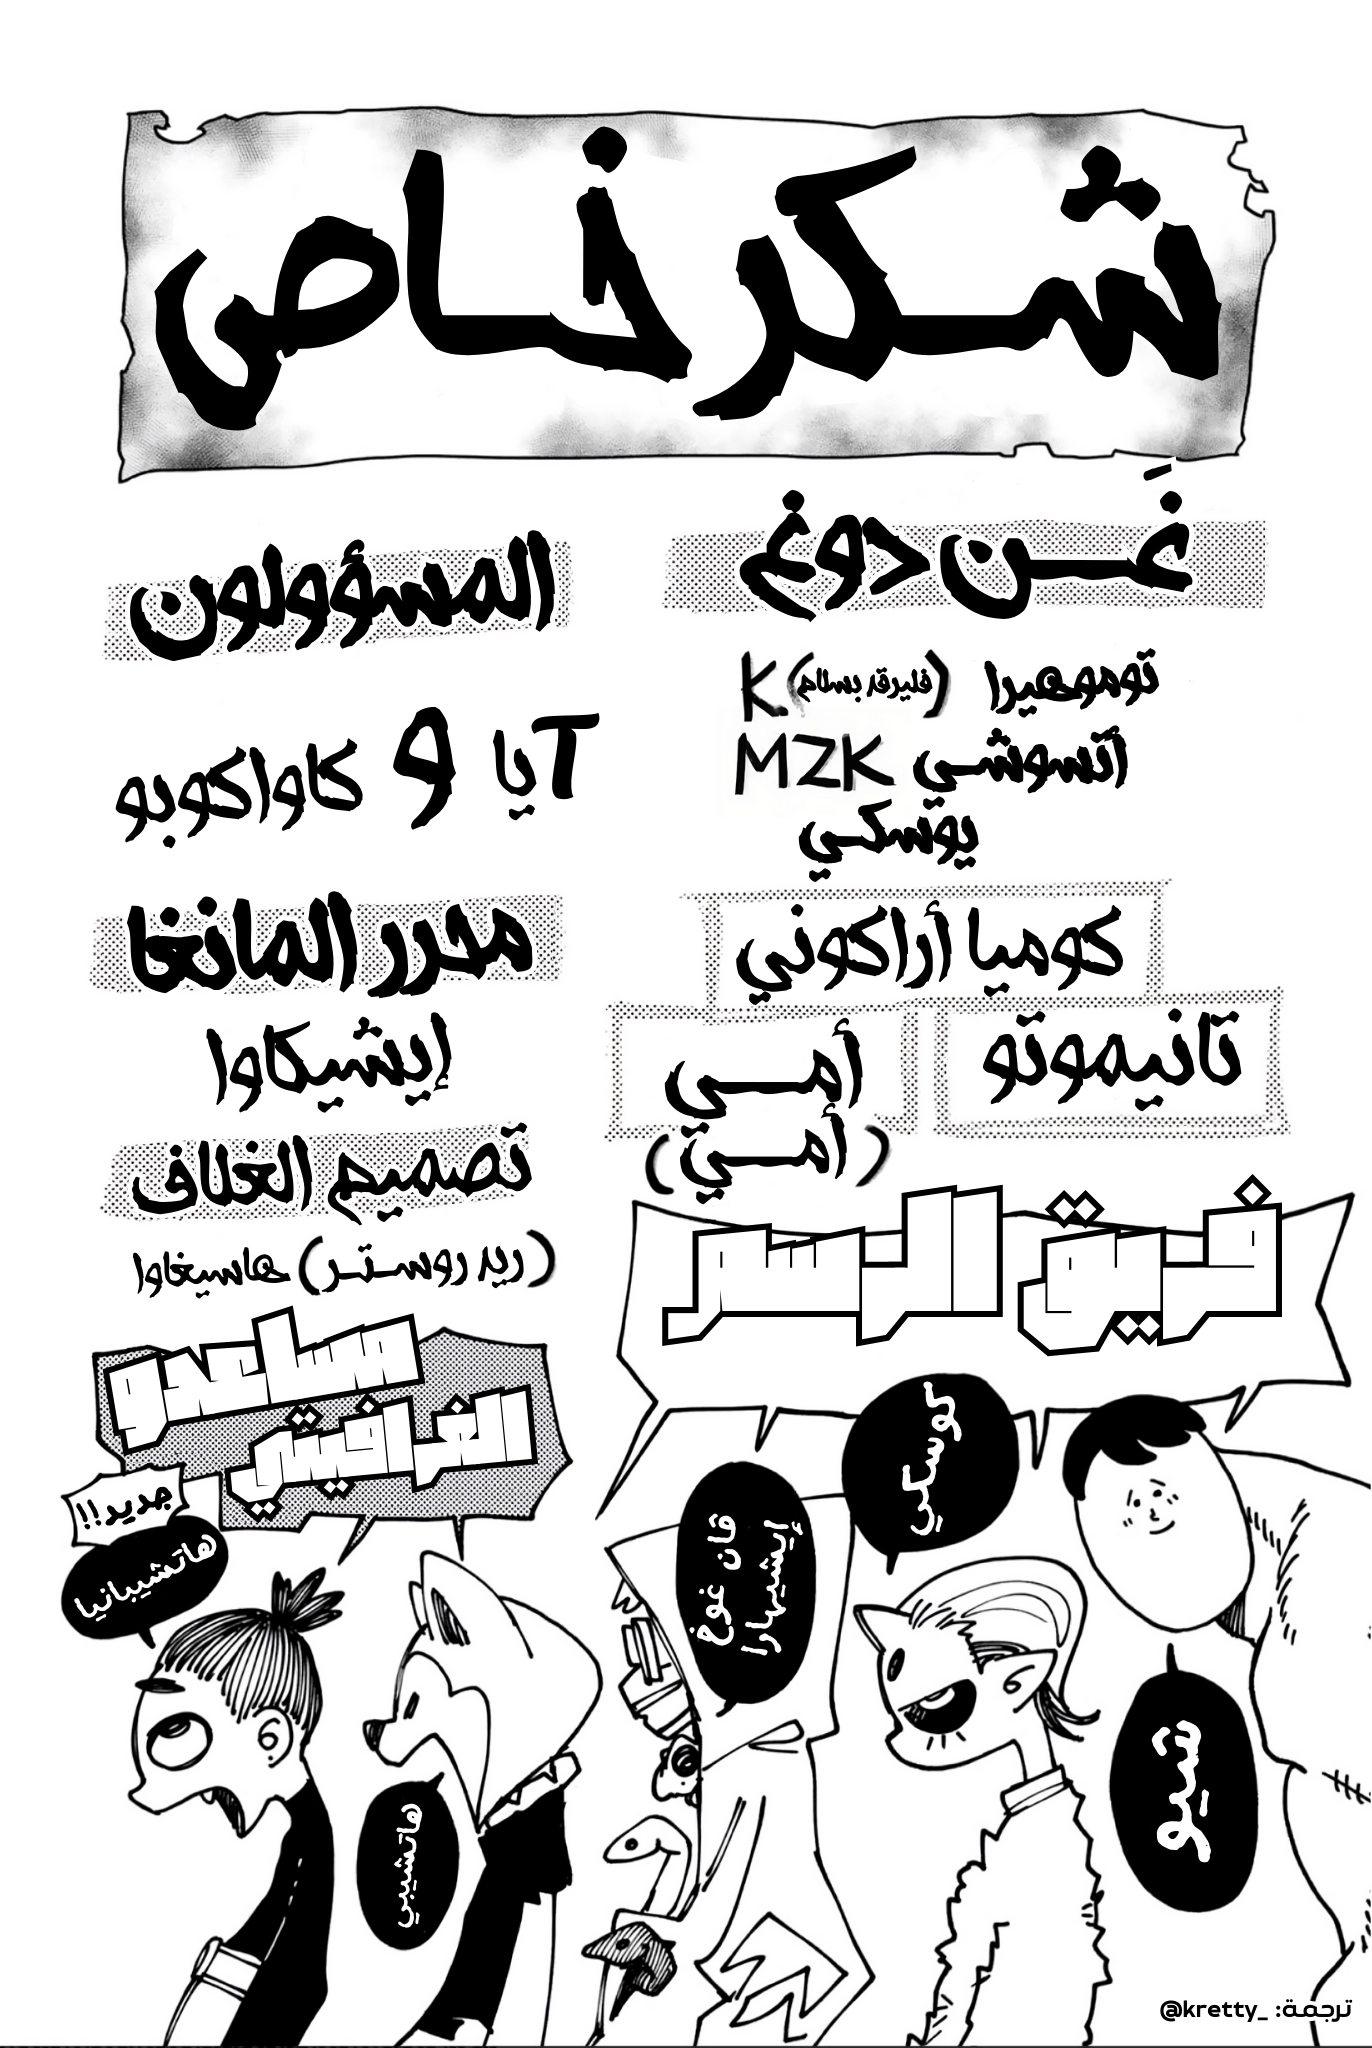 شكر خاص
غَن دوغ
توموهيرا (فليرقد بسلام) K
أتسوشي MZK
يوسكي
كوميا أراكوني
تانيموتو
أمي
(أمي)
المسؤولون
Tيا و كاواكوبو
محرر المانغا
إيشيكاوا
تصميم الغلاف
(ريد روستر) هاسيغاوا
فريق الرسم
شيو
كوسكي
ڤان غوغ
إيشيهارا
مساعدو
الغرافيتي
هاتشيبي
جديد!!
هاتشيبانيا
ترجمة: _kretty@